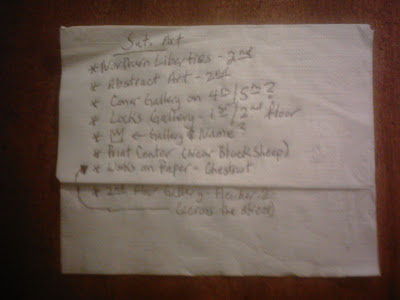 Sat. Art
* Northern Liberties - 2nd
* Abstract Art - 2nd
* Gallery on 4th/5th ?
* Locks Gallery - 1st/2nd floor
* M ← Gallery Name ?
* Print Center (near Black Sheep)
* Works on Paper - Chestnut
* 2nd Floor Gallery -
(across the street)